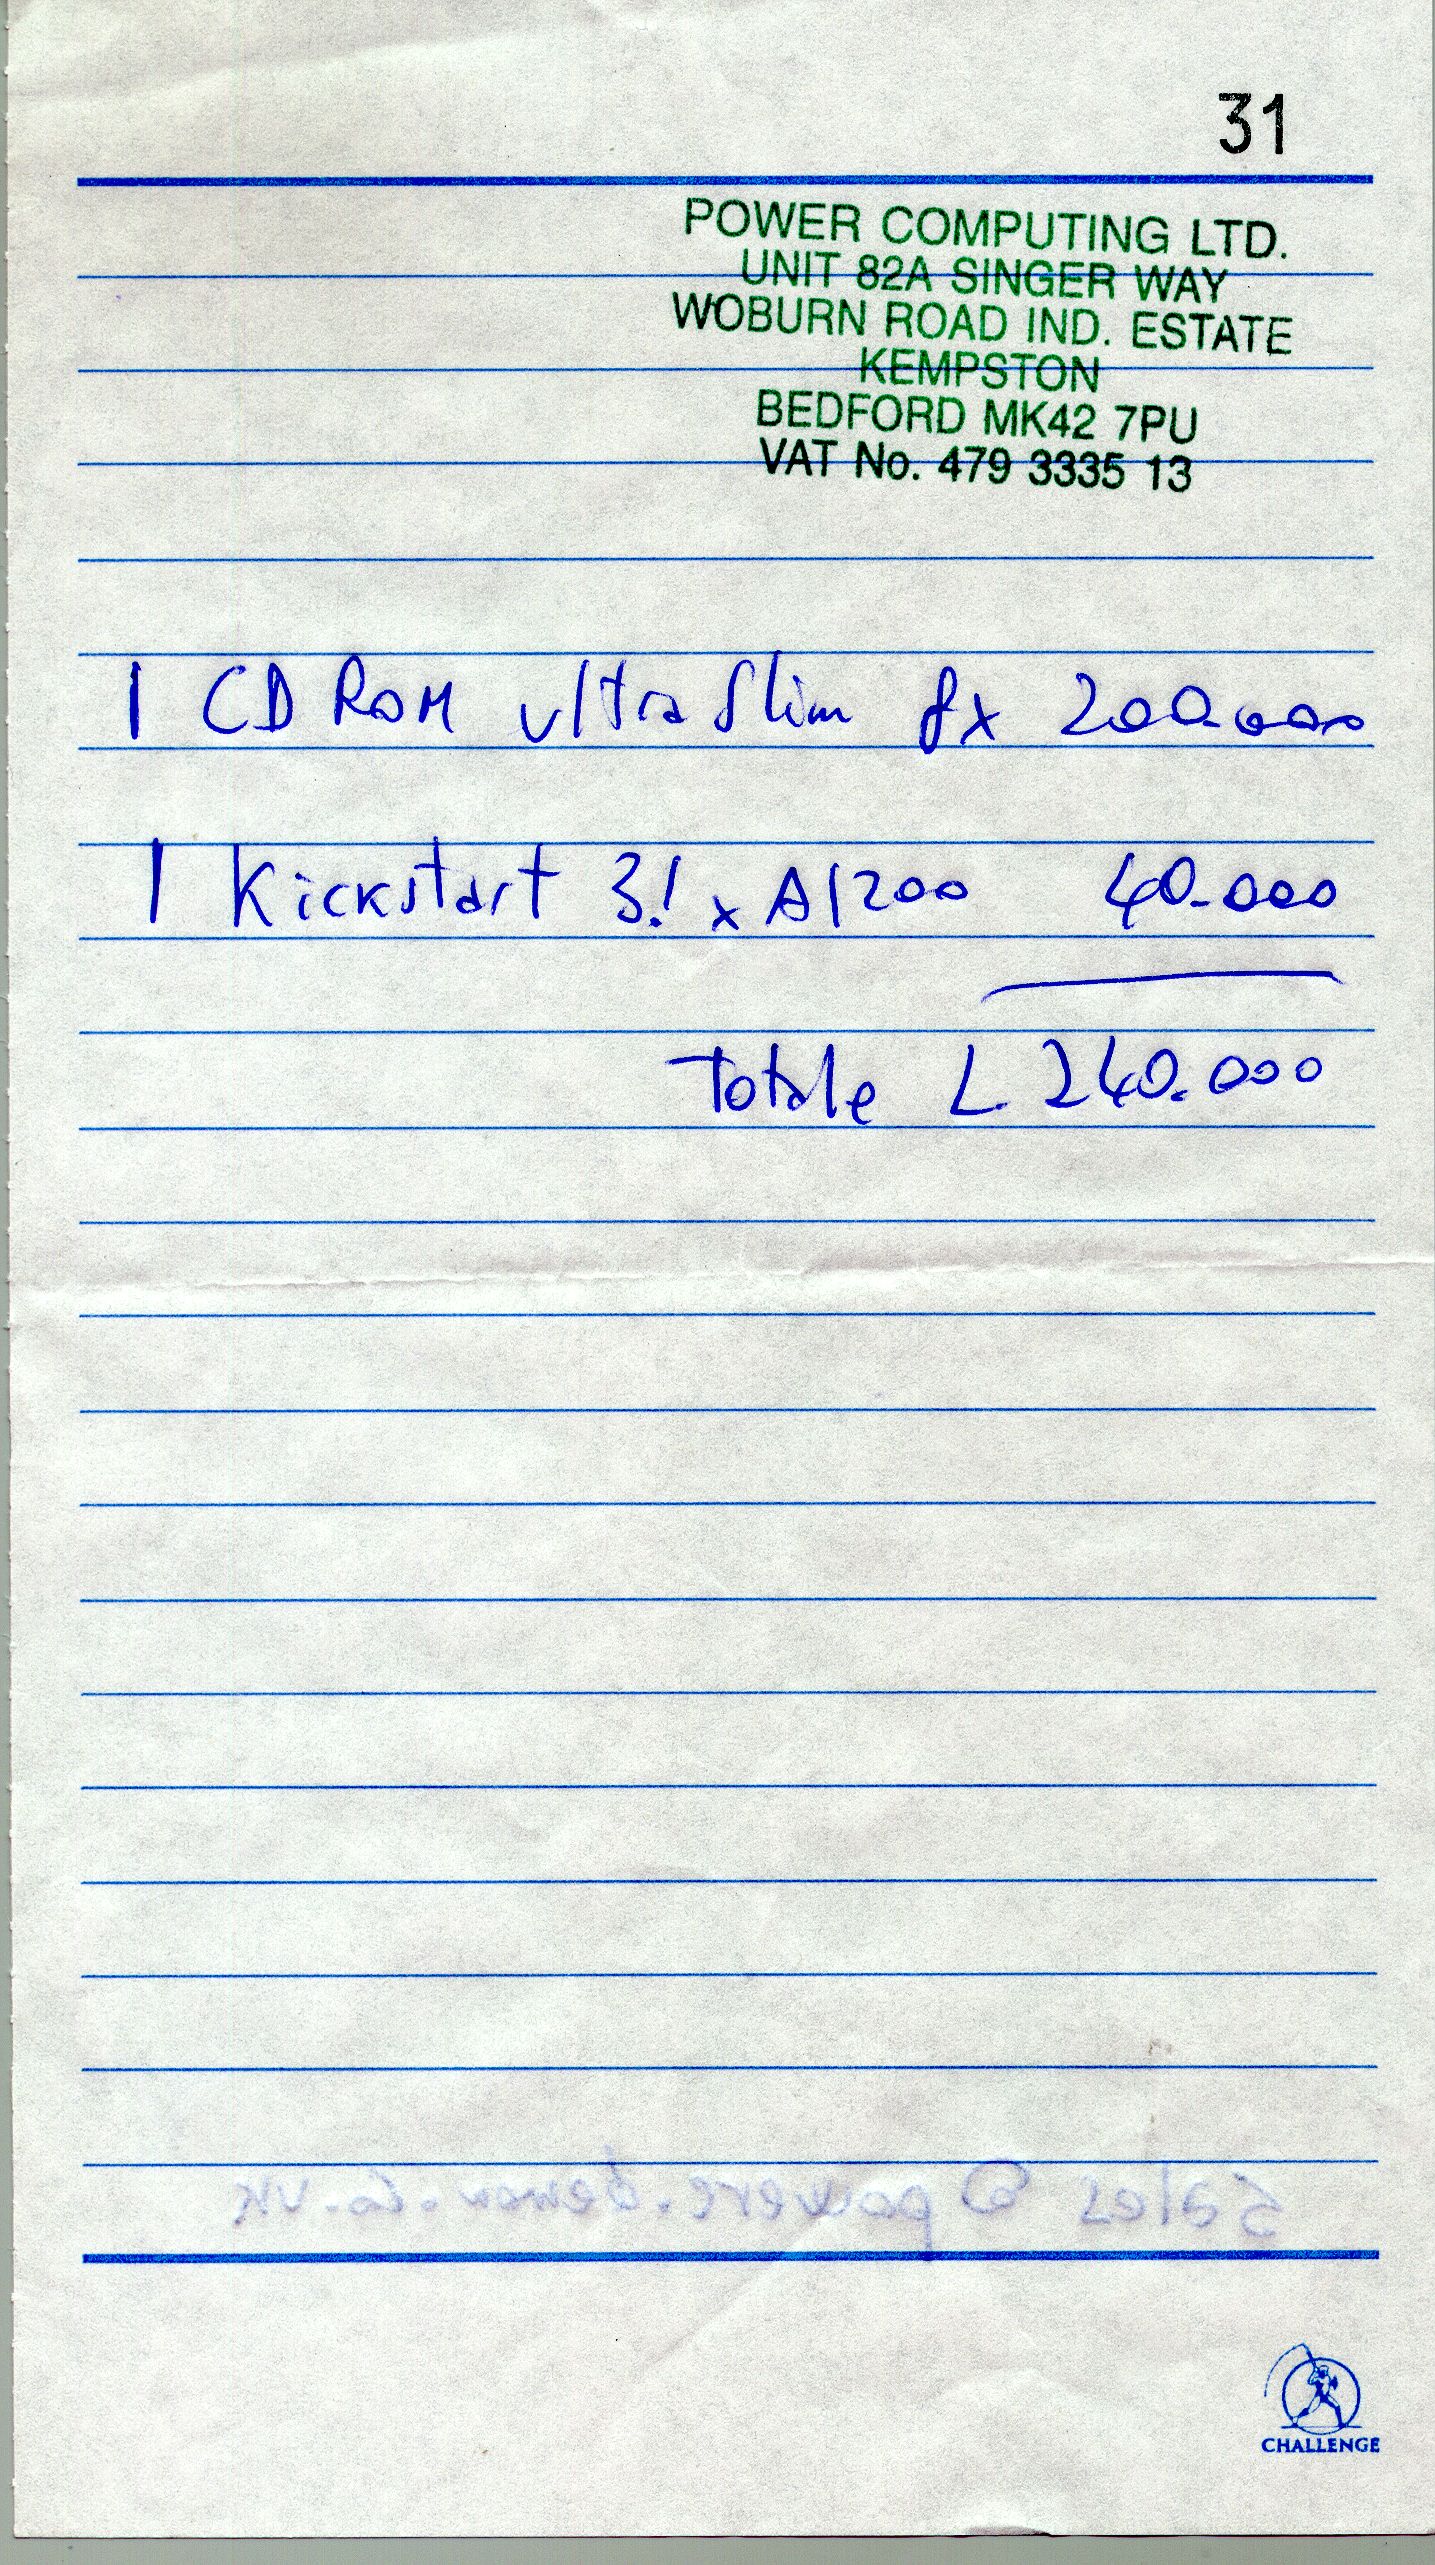 31
POWER COMPUTING LTD.
UNIT 82A SINGER WAY
WOBURN ROAD IND. ESTATE
KEMPSTON
BEDFORD MK42 7PU
VAT No. 479 3335 13
1 CD ROM ultra Slim 8x 200.000
1 Kickstart 3.1 x A1200 40.000
Totale L. 240.000
Sales @ powerc.demon.co.uk
CHALLENGE